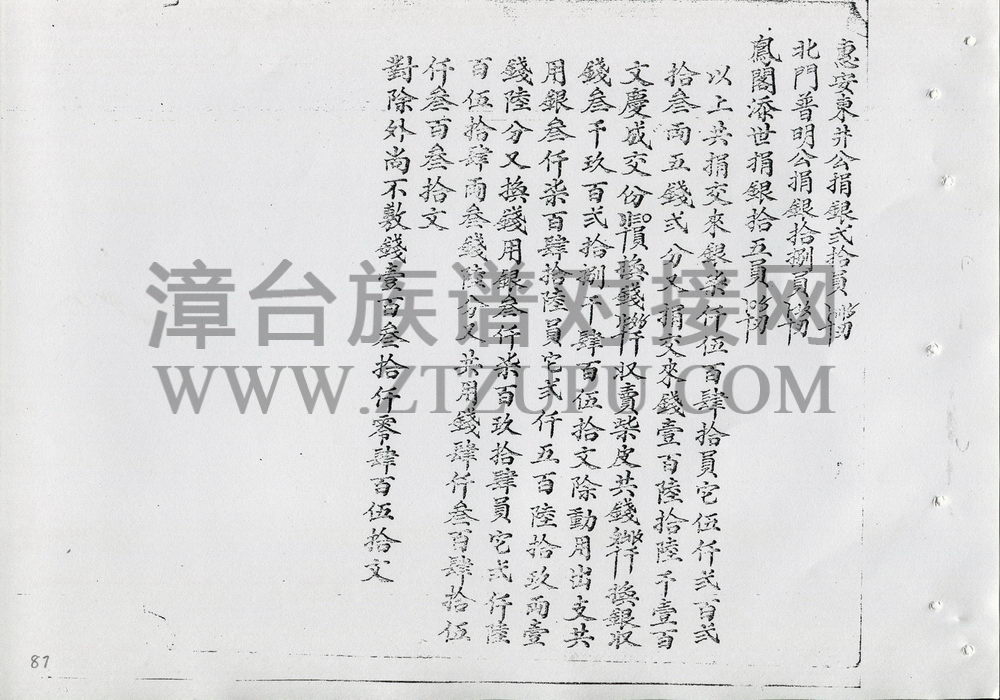 惠安東井公捐銀弍拾員
北門普明公捐銀拾捌員
鳯閣添世捐銀拾五員
以上共捐交來銀柒仟伍百肆拾員它伍仟弍百弍
拾叁兩五錢弍分又捐交來錢壹百陸拾陸千壹百
文慶盛交份換錢収賣柴皮共錢換銀収
錢叁千玖百弍拾捌千肆百伍拾文除動用出支共
用銀叁仟柒百肆拾陸員它弍仟五百陸拾玖兩壹
錢陸分又換錢用銀叁仟柒百玖拾肆員它弍仟陸
百伍拾肆兩叁錢陸分又共用錢肆仟叁百肆拾伍
仟叁百叁拾文
對除外尚不敷錢壹百叁拾仟零肆百伍拾文
漳台族谱对接网
WWW.ZTZUPU.COM
81